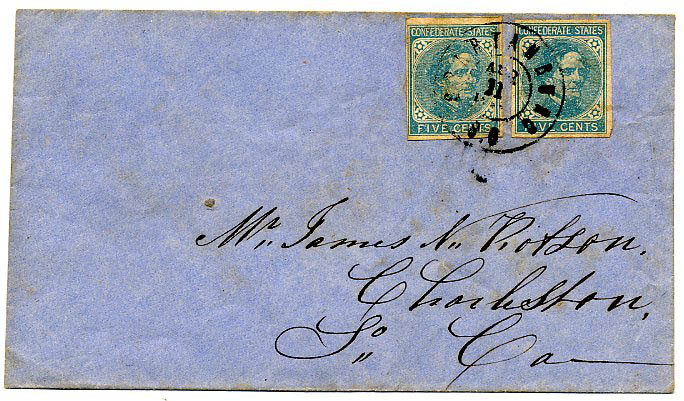 CONFEDERATE STATES CONFEDERATE STATES
FIVE CENTS FIVE CENTS
11
VA
Mr. James N. Robson,
Charleston,
So Ca